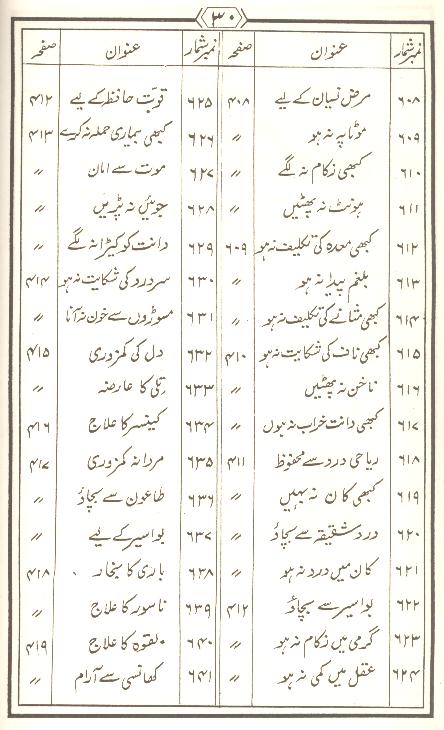 ۳۰
نمبر شمار عنوان صفحہ نمبر شمار عنوان صفحہ
۶۰۸ مرض نسیان کے لیے ۴۰۸ ۶۲۵ قوتِ حافظہ کے لیے ۴۱۲
۶۰۹ موٹاپہ نہ ہو 〃 ۶۲۶ کبھی بیماری حملہ نہ کرے ۴۱۳
۶۱۰ کبھی زکام نہ لگے 〃 ۶۲۷ موت سے امان 〃
۶۱۱ ہونٹ نہ پھٹیں 〃 ۶۲۸ جوئیں نہ پڑیں 〃
۶۱۲ کبھی معدہ کی تکلیف نہ ہو ۶۰۹ ۶۲۹ دانت کو کیڑا نہ لگے 〃
۶۱۳ بلغم پیدا نہ ہو 〃 ۶۳۰ سر درد کی شکایت نہ ہو ۴۱۴
۶۱۴ کبھی مثانے کی تکلیف نہ ہو 〃 ۶۳۱ مسوڑوں سے خون نہ آنا 〃
۶۱۵ کبھی ناف کی شکایت نہ ہو ۴۱۰ ۶۳۲ دل کی کمزوری ۴۱۵
۶۱۶ ناخن نہ پھٹیں 〃 ۶۳۳ تلی کا عارضہ 〃
۶۱۷ کبھی دانت خراب نہ ہوں 〃 ۶۳۴ کینسر کا علاج ۴۱۶
۶۱۸ ریاحی درد سے محفوظ ۴۱۱ ۶۳۵ مردانہ کمزوری ۴۱۷
۶۱۹ کبھی کان نہ بہیں 〃 ۶۳۶ طاعون سے بچاؤ 〃
۶۲۰ درد شقیقہ سے بچاؤ 〃 ۶۳۷ بواسیر کے لیے 〃
۶۲۱ کان میں درد نہ ہو 〃 ۶۳۸ باری کا بخار ۴۱۸
۶۲۲ بواسیر سے بچاؤ ۴۱۲ ۶۳۹ ناسور کا علاج 〃
۶۲۳ گرمی میں زکام نہ ہو 〃 ۶۴۰ لقوہ کا علاج ۴۱۹
۶۲۴ عقل میں کمی نہ ہو 〃 ۶۴۱ کھانسی سے آرام 〃